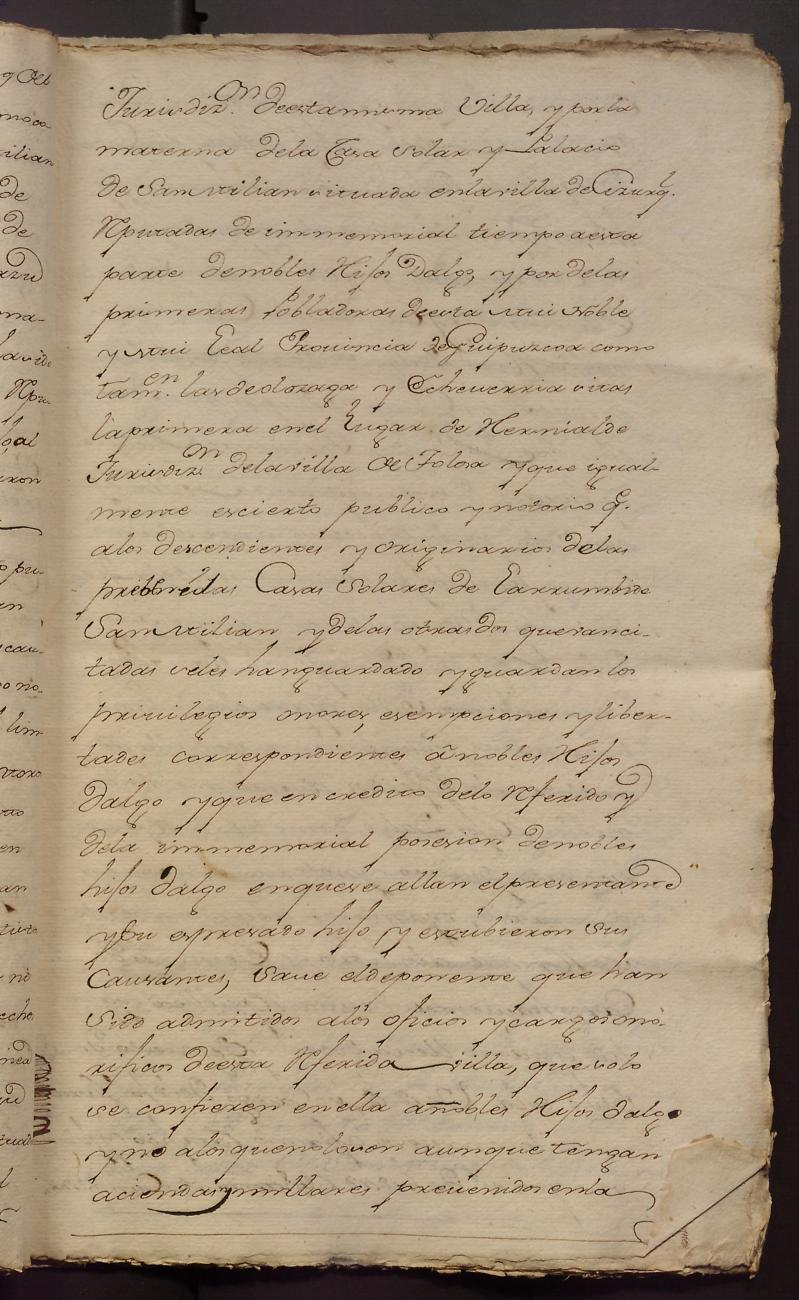 Jurisdizon. de esta misma Villa, y por la
materna dela Casa Solar y Palacio
de Sam millian situada en la villa de Cizurql.
Rputadas de immemorial tiempo a esta
parte de nobles Hijos Dalgo, y por delas
primeras Pobladoras de esta mui Noble
y mui Leal Prouincia de Guipuzcoa como
tamen. las de olozaga y Echeuerria sitas
la primera en el Lugar de Hernialde
Jurisdizon. dela villa de Tolosa y que igual-
mente es cierto publico y notorio q.
alos descendientes y originarios delas
Casas Solares de Larrumbide
Sam millian y delas otras dos que ban ci-
tadas seles han guardado y guardan los
priuilegios onores, esempciones y liber-
tades correspondientes â nobles Hijos
dalgo y que en credito delo Rferido y
dela immemorial posesion de nobles
hijos dalgo en que se allan el presentante
y su espresado hijo y estubieron sus
Causantes, Saue el deponente que han
Sido admitidos alos oficios y cargos ono-
rificos de esta Rferida villa, que solo
se confieren en ella a nobles Hijos dalgo
y no alos que no lo son aunque tengan
aciendas y millares preuenidos en la